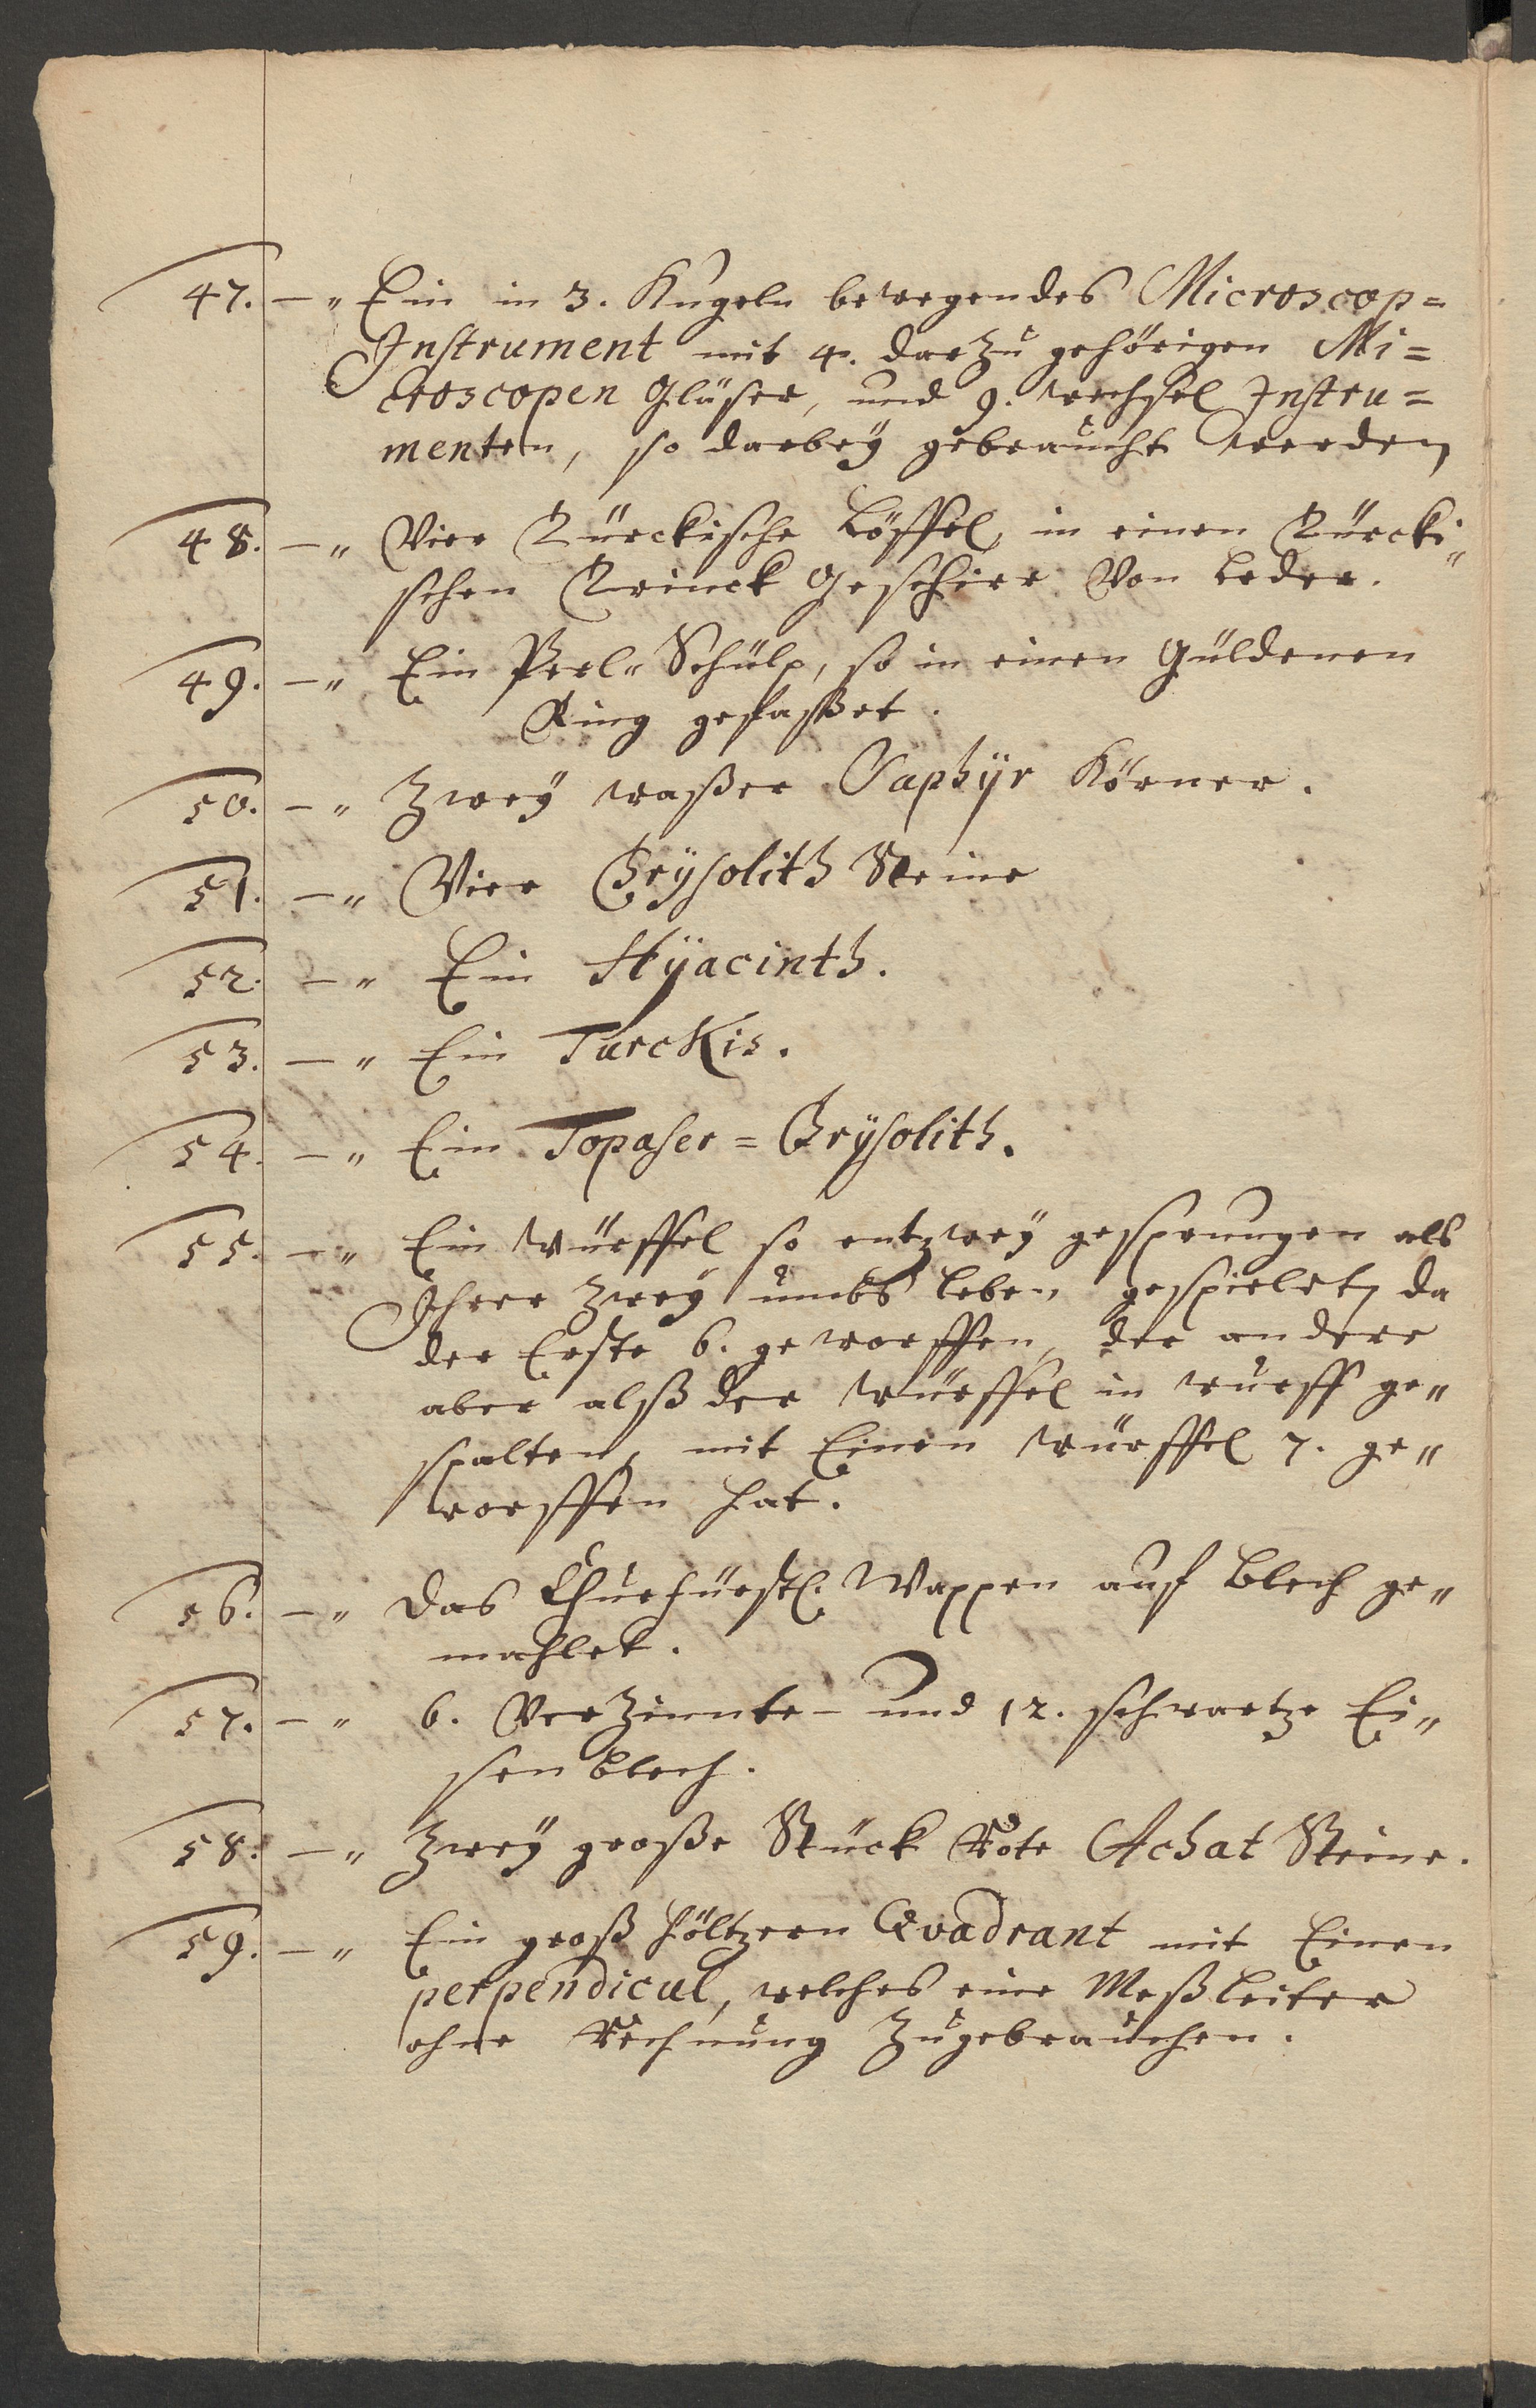 47. — „ Ein in 3. Kugeln bewegendes Microscop=
Instrument mit 4. darzu gehörigen Mi=
croscopen Gläser, und 9. wechsel Instru=
menten, so darbeÿ gebraucht werden
48. — „ Vier Türckische Löffel, in einen Türcki„
schen Trinck Geschirr Von Leder.
49. — „ Ein Perl„ Schülp, so in einen Güldenen
Ring gefaßet.
50. — „ Zweÿ waßer Saphÿr Körner.
51. — „ Vier Crÿsolith Steine
52. — „ Ein Hÿacinth.
53. — „ Ein Turckis.
54. — „ Ein Topaser = Crÿsolith.
55. — „ Ein Würffel so entzweÿ gesprungen als
Ihrer Zweÿ umbs Leben gespielet, da
der Erste 6. geworffen, der andere
aber alß der Würffel in wurff ge„
spalten, mit Einen Würffel 7. ge„
worffen hat.
56. — „ Das Churfürstl. Wappen auf Blech ge„
mahlet.
57. — „ 6. Verzinnte- und 12. schwartze Ei„
sen blech.
58. — „ Zweÿ große Stück Rote Achat Steine.
59. — „ Ein groß höltzern Qvadrant mit Einen
perpendicul, welches eine Meßleiter
ohne Rechnung Zugebrauchen.